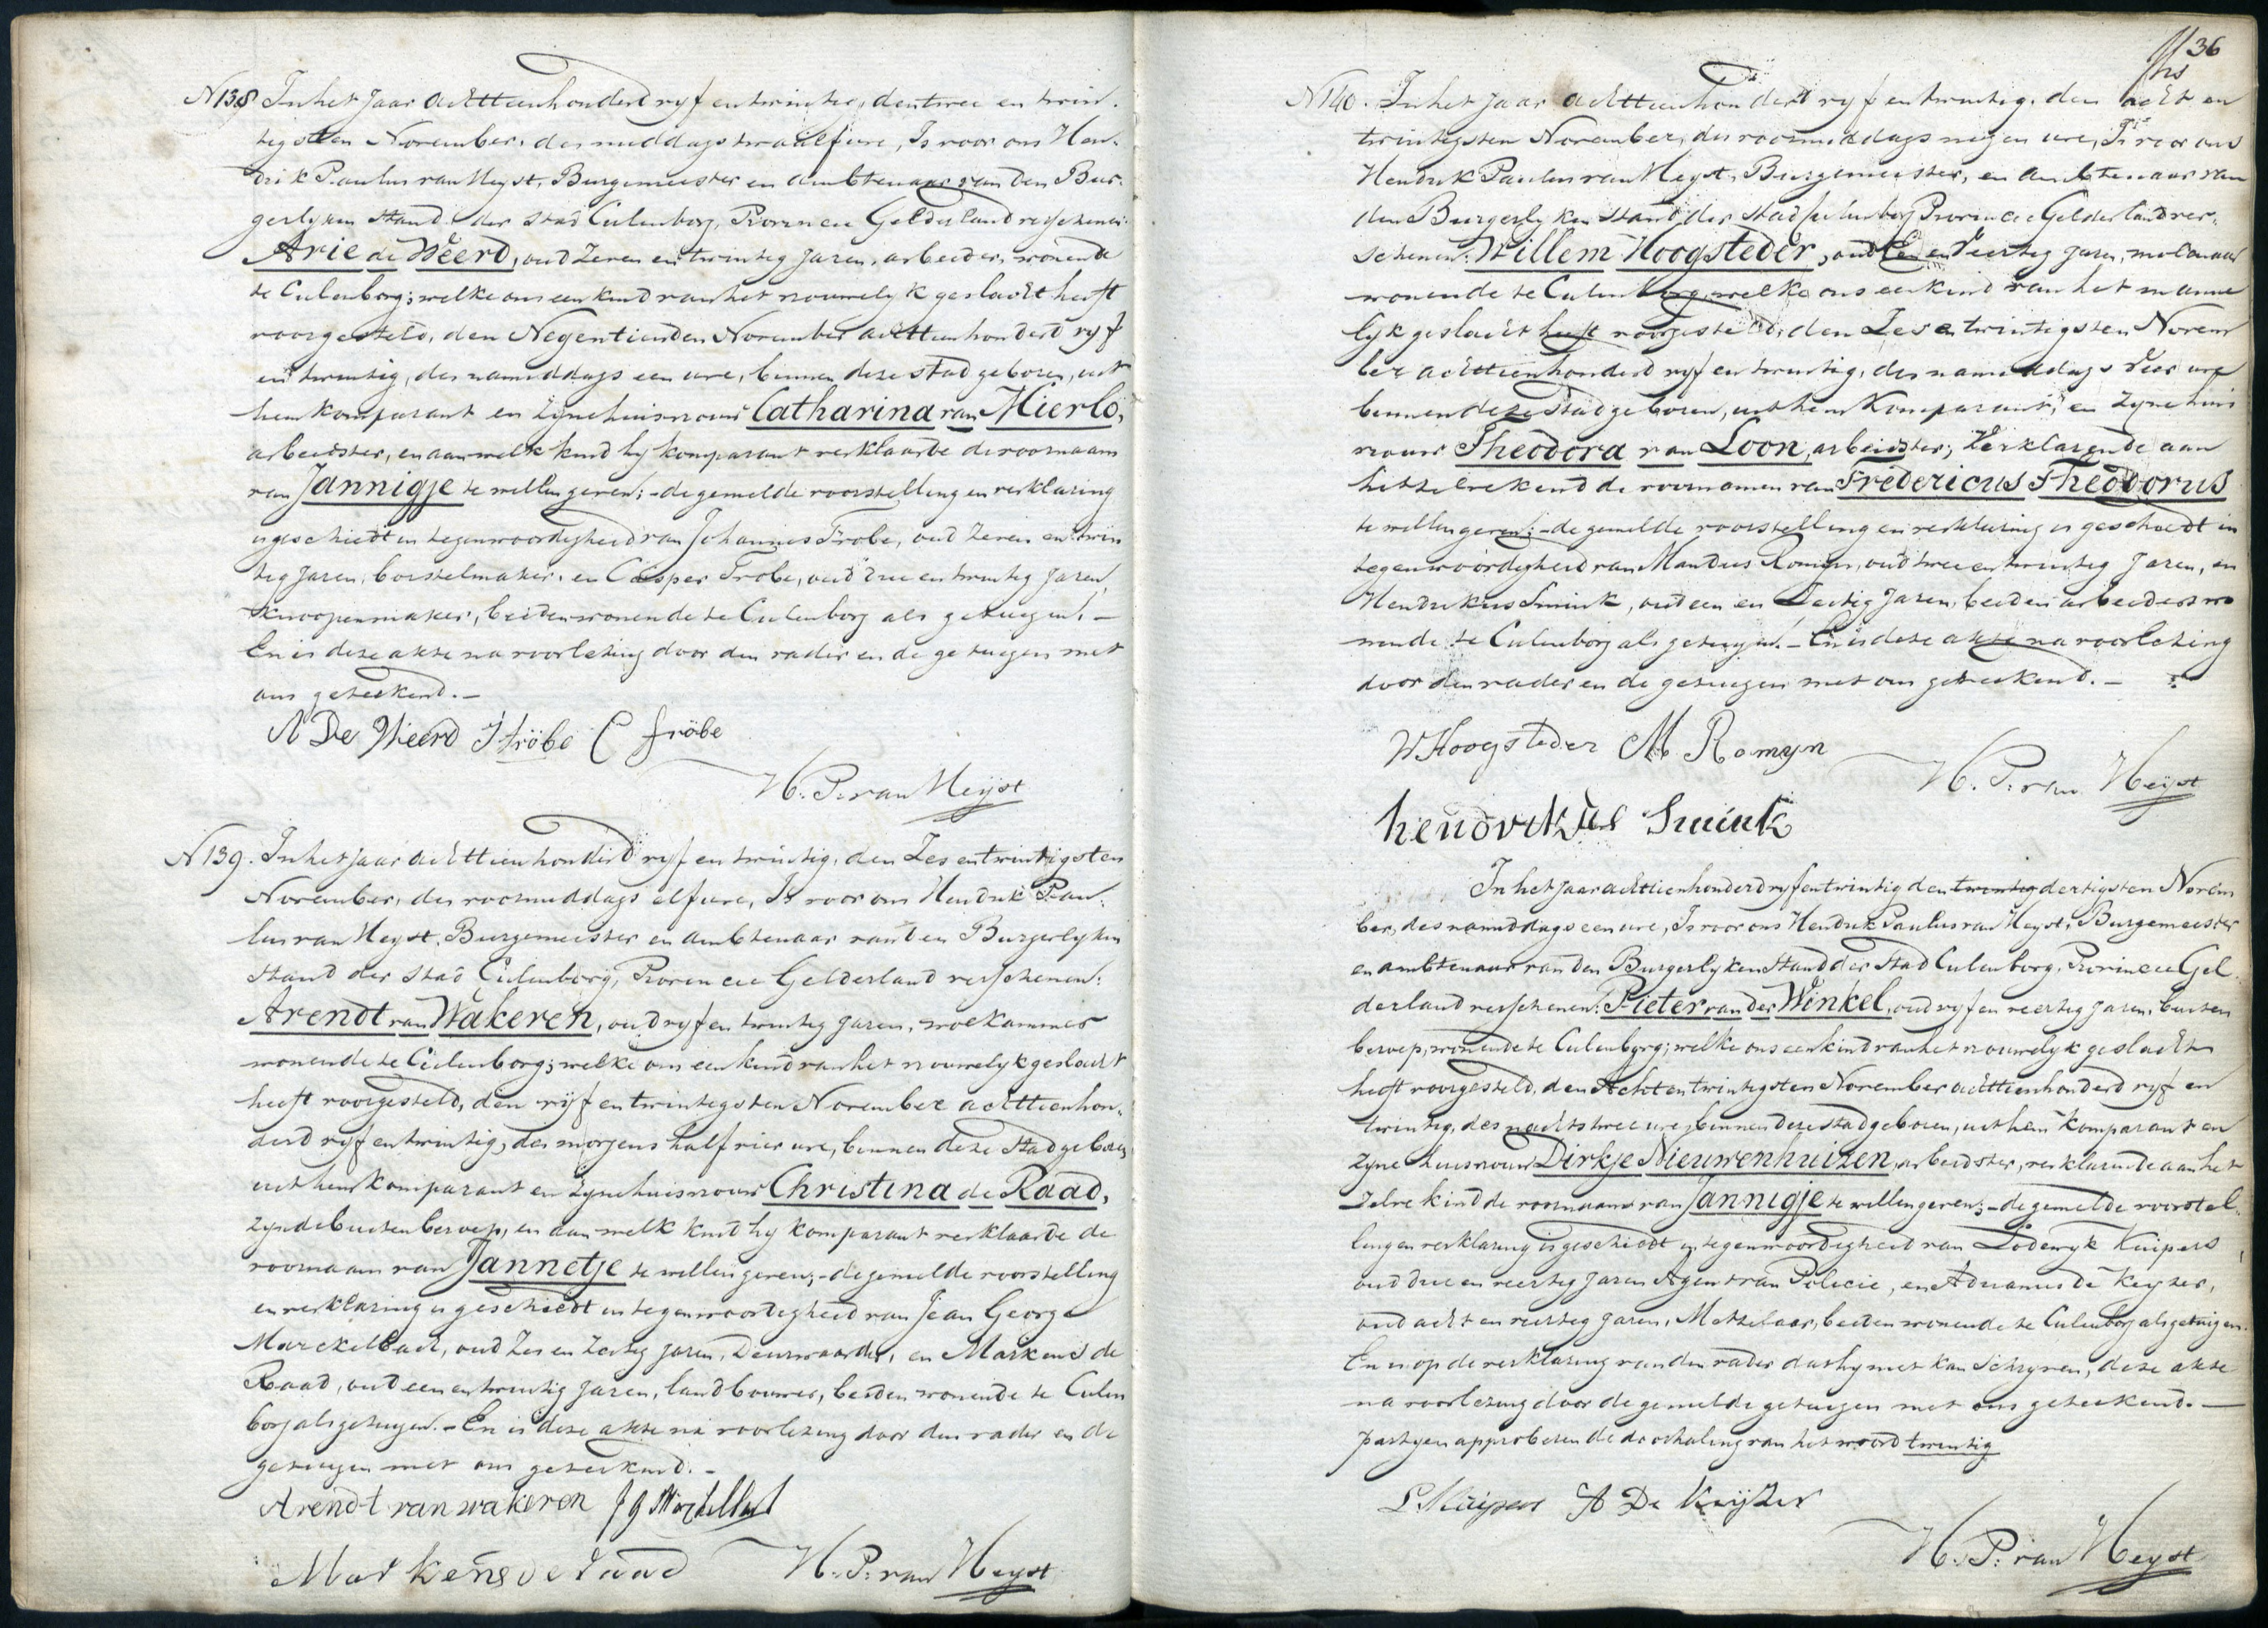 N138 In het Jaar achttienhonderd vyf en twintig, den twee en twin-
tigsten November, des middags twaalf ure, Is voor ons Hen-
drik Paulus van Heyst, Burgemeester en ambtenaar van den Bur-
gerlyken Stand der Stad Culenborg, Provincie Gelderland verschenen:
Arie de Weerd, oud Zeven en twintig Jaren, arbeider, wonende
te Culenborg; welke ons een kind van het vrouwelyk geslacht heeft
voorgesteld, den Negentienden November achttienhonderd vyf
en twintig, des namiddags een ure, binnen deze stad geboren, uit
hem komparant en zyne huisvrouw Catharina van Mierlo,
arbeidster, en aan welk kind hy komparant verklaarde de voornaam
van Jannigje te willen geven; - de gemelde voorstelling en verklaring
is geschiedt in tegenwoordigheid van Johannes Frobe, oud Zeven en twin
tig Jaren, borstelmaker, en Casper Frobe, oud drie en twintig Jaren,
Knoopenmaker, beiden wonende te Culenborg als getuigen. -
En is deze akte na voorlezing door den vader en de getuigen met
ons geteekend. -
A De Weerd J Fröbe C Fröbe
H. P. van Heyst
N139. In het Jaar achttienhonderd vyf en twintig, den Zes en twintigsten
November, des voormiddags elf ure, Is voor ons Hendrik Pau-
lus van Heyst, Burgemeester en ambtenaar van den Burgerlyken
Stand der Stad Culenborg, Provincie Gelderland verschenen:
Arendt van Wakeren, oud vyf en twintig Jaren, wolkammer
wonende te Culenborg; welke ons een kind van het vrouwelyk geslacht
heeft voorgesteld, den vyf en twintigsten November achttienhon-
derd vyf en twintig, des morgens half vier ure, binnen deze Stad geboren,
uit hem komparant en zyne huisvrouw Christina de Raad,
zynde buiten beroep, en aan welk kind hy komparant verklaarde de
voornaam van Jannetje te willen geven; - de gemelde voorstelling
en verklaring is geschiedt in tegenwoordigheid van Jean George
Marckelbach, oud Zes en Zestig Jaren, Deurwaarder, en Markens de
Raad, oud een en twintig Jaren, landbouwer, beiden wonende te Culen
borg als getuigen. - En is deze akte na voorlezing door den vader en de
getuigen met ons geteekend. -
Arendt van wakeren J G Marckelbach
Markens de raad H. P. van Heyst
36
N140. In het Jaar achttienhonderd vyf en twintig, den acht en
twintigsten November, des voormiddags negen ure, Is voor ons
Hendrik Paulus van Heyst, Burgemeester, en Ambtenaar van
den Burgerlyken Stand der Stad Culenborg Provincie Gelderland ver-
schenen: Willem Hoogsteder, oud Een en Veertig Jaren, molenaar
wonende te Culenborg, welke ons een kind van het manne
lyk geslacht heeft voorgesteld, den Zes en twintigsten Novem
ber achttienhonderd vyf en twintig, des namiddags vier ure
binnen deze Stad geboren, uit hem Komparant, en zyne huis
vrouw Theodora van Loon, arbeidster, Verklarende aan
hetzelve kind de voornamen van Fredericus Theodorus
te willen geven; - de gemelde voorstelling en verklaring is geschiedt in
tegenwoordigheid van Mandus Romyn, oud twee en twintig Jaren, en
Hendrikus Smink, oud een en Zestig Jaren, beiden arbeiders wo
nende te Culenborg als getuigen. - En is deze akte na voorlezing
door den vader en de getuigen met ons geteekend. -
W Hoogsteder M. Romyn
H. P. van Heyst
hendrikus Smink
In het jaar achttienhonderd vyf en twintig den twintig dertigsten Novem
ber, des namiddags een ure, Is voor ons Hendrik Paulus van Heyst, Burgemeester
en ambtenaar van den Burgerlyken Stand der Stad Culenborg, Provincie Gel
derland verschenen: Pieter van der Winkel, oud vyf en veertig Jaren, buiten
beroep, wonende te Culenborg; welke ons een kind van het vrouwelyk geslacht
heeft voorgesteld, den Acht en twintigsten November achttienhonderd vyf en
twintig, des nachts twee ure, binnen deze stad geboren, uit hem komparant en
zyne huisvrouw Dirkje Nieuwenhuizen, arbeidster, verklarende aan het
zelve kind de voornaam van Jannigje te willen geven; - de gemelde voorstel
ling en verklaring is geschiedt in tegenwoordigheid van Lodewyk Kuipers,
oud drie en veertig Jaren Agent van Policie, en Adrianus de Keyzer,
oud acht en veertig Jaren, Metzelaar, beiden wonende te Culenborg als getuigen.
En is op de verklaring van den vader dat hy niet kan Schryven, deze akte
na voorlezing door de gemelde getuigen met ons geteekend. -
partyen approberen de doorhaling van het woord twintig
L. Kuipers A De Keijzer
H. P. van Heyst